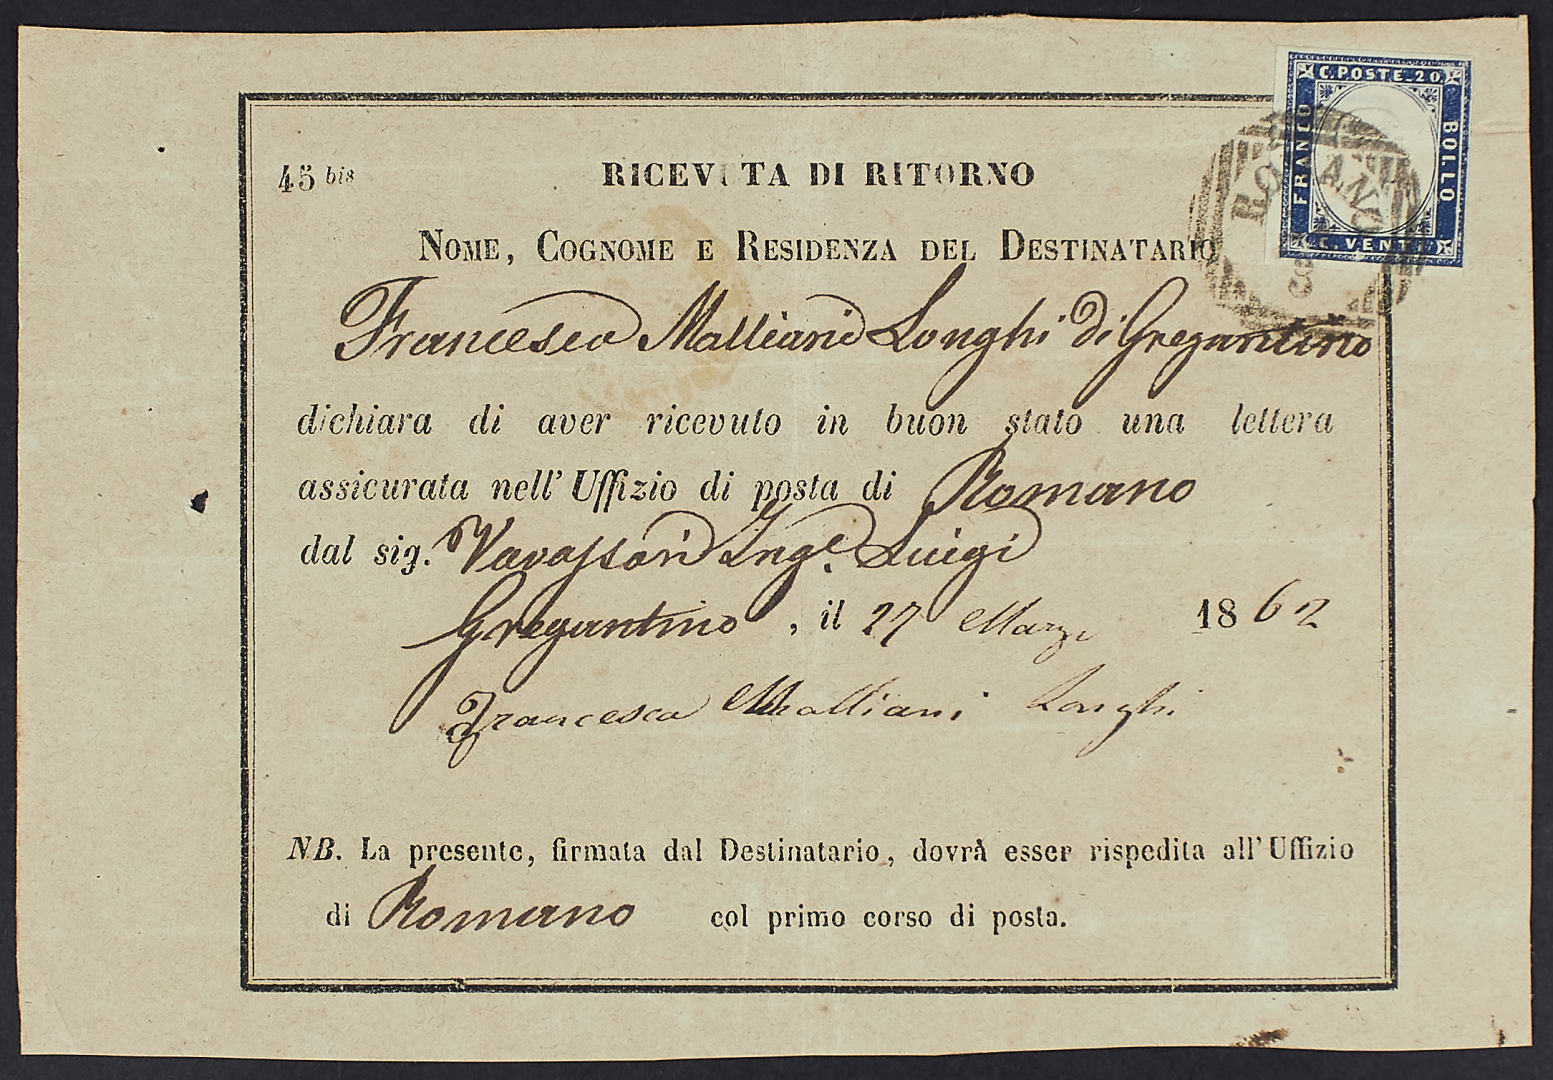 C. POSTE. 20.
FRANCO
BOLLO
C. VENTI
45 bis
RICEVUTA DI RITORNO
NOME, COGNOME E RESIDENZA DEL DESTINATARIO
Francesca Malliani Longhi di Gregantino
dichiara di aver ricevuto in buon stato una lettera
assicurata nell' Uffizio di posta di Romano
dal sig. Vavassori Inge. Luigi
Gregantino, il 27 Marzo 1862
Francesca Malliani Longhi
N.B. La presente, firmata dal Destinatario, dovrà esser rispedita all' Uffizio
di Romano col primo corso di posta.